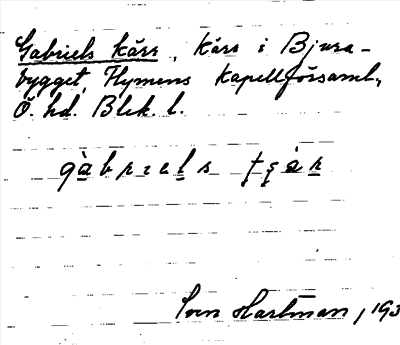 Gabriels kärr, kärr i Bjura-
bygget, Flymens kapellförsaml.,
Ö. hd. Blek. l.
Sven Hartman, 193